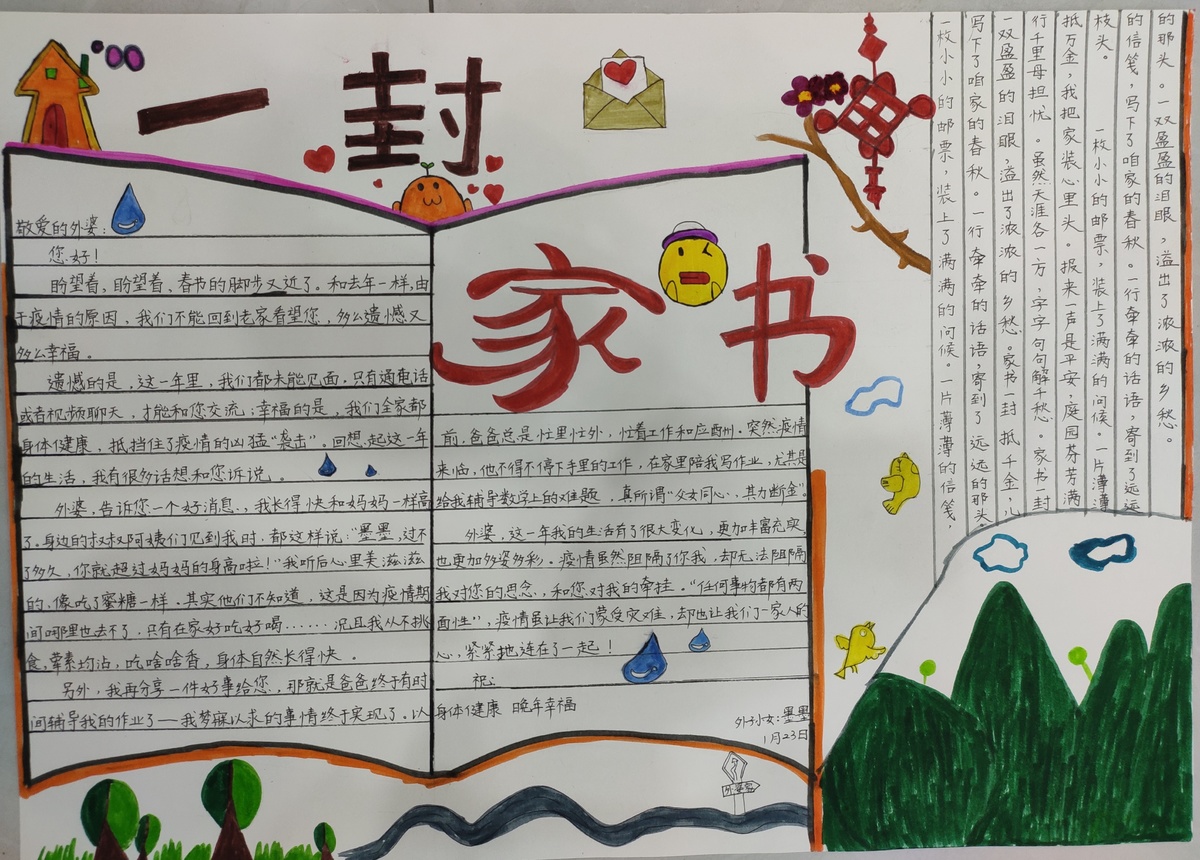 一封
家书
敬爱的外婆：
您好！
盼望着，盼望着，春节的脚步又近了。和去年一样，由
于疫情的原因，我们不能回到老家看望您，多么遗憾又
多么幸福。
遗憾的是，这一年里，我们都未能见面，只有通电话
或者视频聊天，才能和您交流；幸福的是，我们全家都
身体健康，抵挡住了疫情的凶猛“袭击”。回想起这一年
的生活，我有很多话想和您诉说。
外婆，告诉您一个好消息，我长得快和妈妈一样高
了。身边的叔叔阿姨们见到我时，都这样说：“墨墨，过不
了多久，你就超过妈妈的身高啦！”我听后心里美滋滋
的，像吃了蜜糖一样。其实他们不知道，这是因为疫情期
间哪里也去不了，只有在家好吃好喝……况且我从不挑
食，荤素均沾，吃啥啥香，身体自然长得快。
另外，我再分享一件好事给您，那就是爸爸终于有时
间辅导我的作业了——我梦寐以求的事情终于实现了。以
前，爸爸总是忙里忙外，忙着工作和应酬。突然疫情
来临，他不得不停下手里的工作，在家里陪我写作业，尤其是
给我辅导数学上的难题，真所谓“父女同心，其力断金”。
外婆，这一年我的生活有了很大变化，更加丰富充实，
也更加多姿多彩。疫情虽然阻隔了你我，却无法阻隔
我对您的思念，和您对我的牵挂。“任何事物都有两
面性”，疫情虽让我们蒙受灾难，却也让我们一家人的
心，紧紧地连在了一起！
祝：
身体健康 晚年幸福
外孙女：墨墨
1月23日
外婆家
的那头。一双盈盈的泪眼，溢出了浓浓的乡愁。
的信笺，写下了咱家的春秋。一行牵牵的话语，寄到了远远
枝头。 一枚小小的邮票，装上了满满的问候。一片薄薄
抵万金，我把家装心里头。报来一声是平安，庭园芬芳满
行千里母担忧。虽然天涯各一方，字字句句解千愁。家书一封
一双盈盈的泪眼，溢出了浓浓的乡愁。家书一封抵千金，儿
写下了咱家的春秋。一行牵牵的话语，寄到了远远的那头。
一枚小小的邮票，装上了满满的问候。一片薄薄的信笺，